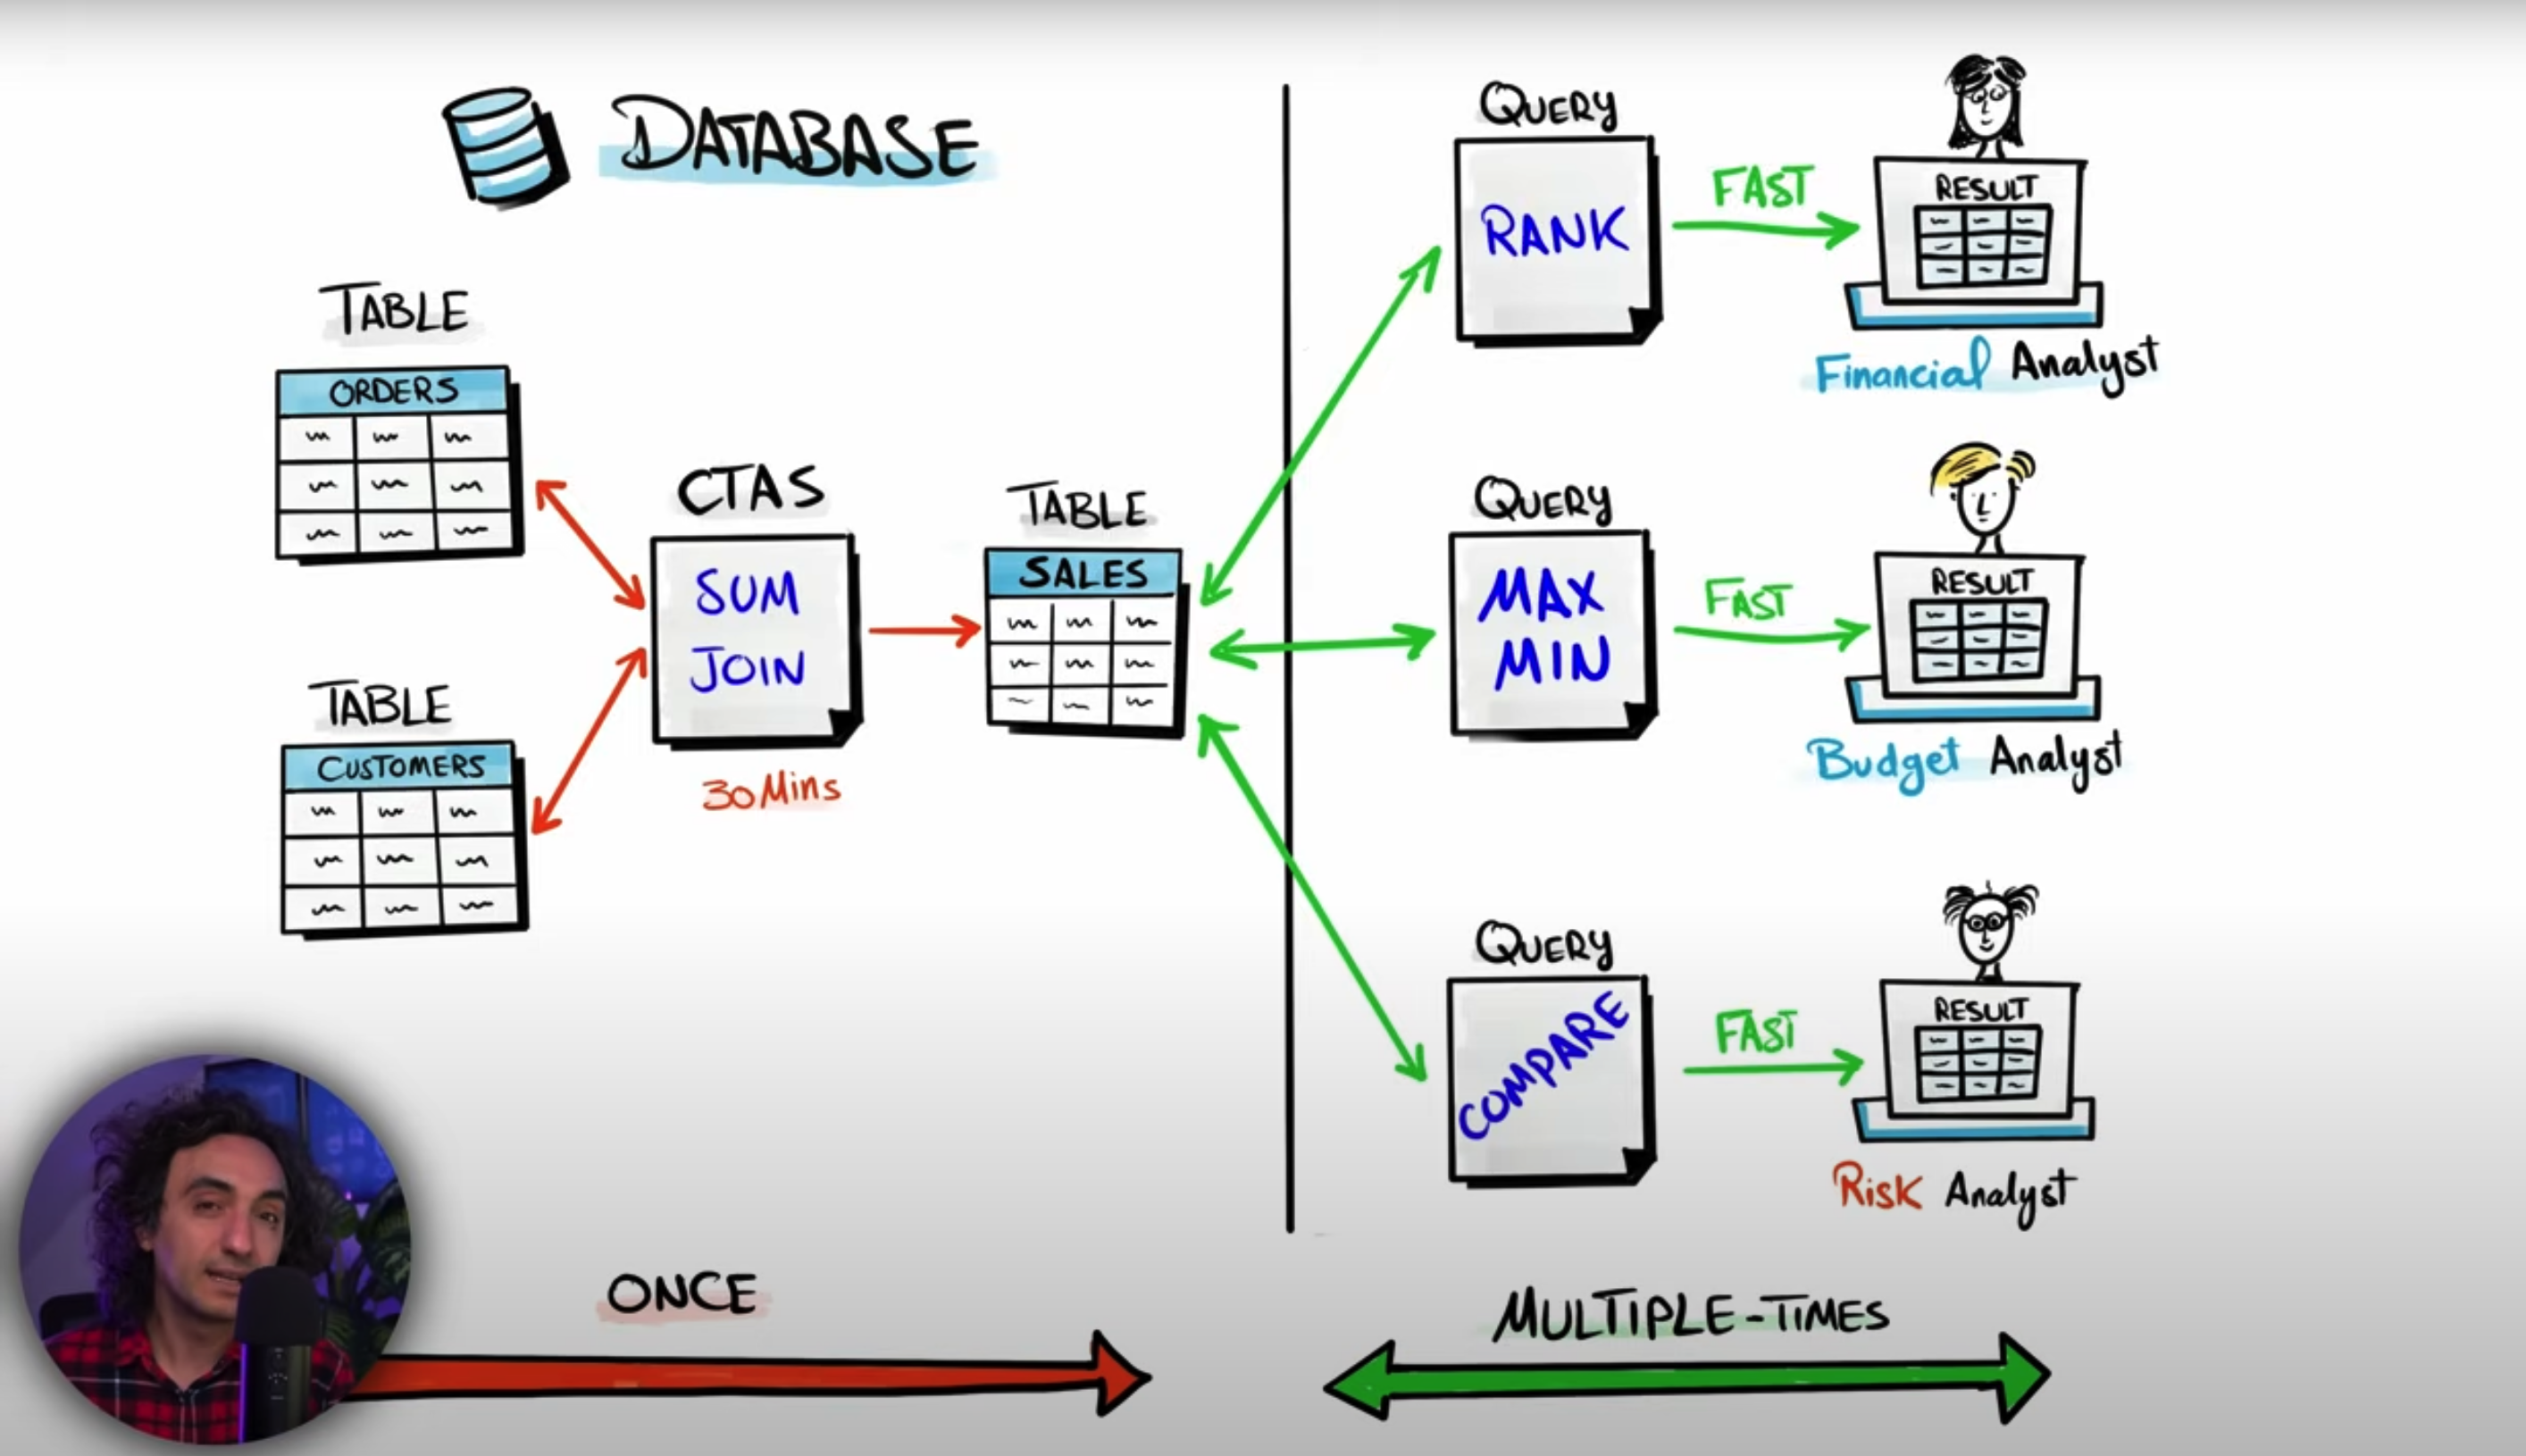 DATABASE
TABLE
ORDERS
TABLE
CUSTOMERS
CTAS
SUM
JOIN
30 Mins
TABLE
SALES
QUERY
RANK
FAST
RESULT
Financial Analyst
QUERY
MAX
MIN
FAST
RESULT
Budget Analyst
QUERY
COMPARE
FAST
RESULT
Risk Analyst
ONCE
MULTIPLE-TIMES